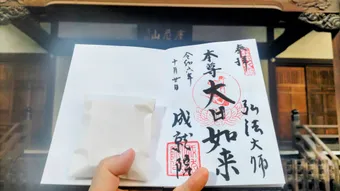 奉拝
弘法大師
本尊
大日如来
成就院
令和六年
十月廿日